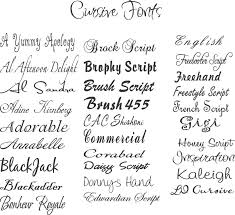 Cursive Fonts
A Yummy Apology
Al Afternoon Delight
Adine Kirnberg
Adorable
Annabelle
BlackJack
Blackadder
Bonheur Royale
Brock Script
Brophy Script
Brush Script
Brush 455
C.A.C. Shishoni
Commercial
Corabael
Daizy Script
Donny's Hand
Edwardian Script
English
Freebooter Script
Freehand
Freestyle Script
French Script
Gigi
Honey Script
Inspiration
Kaleigh
LD Cursive